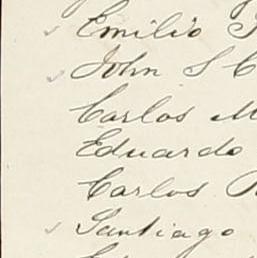 Emilio
John S C
Carlos M
Eduardo
Carlos
Santiago